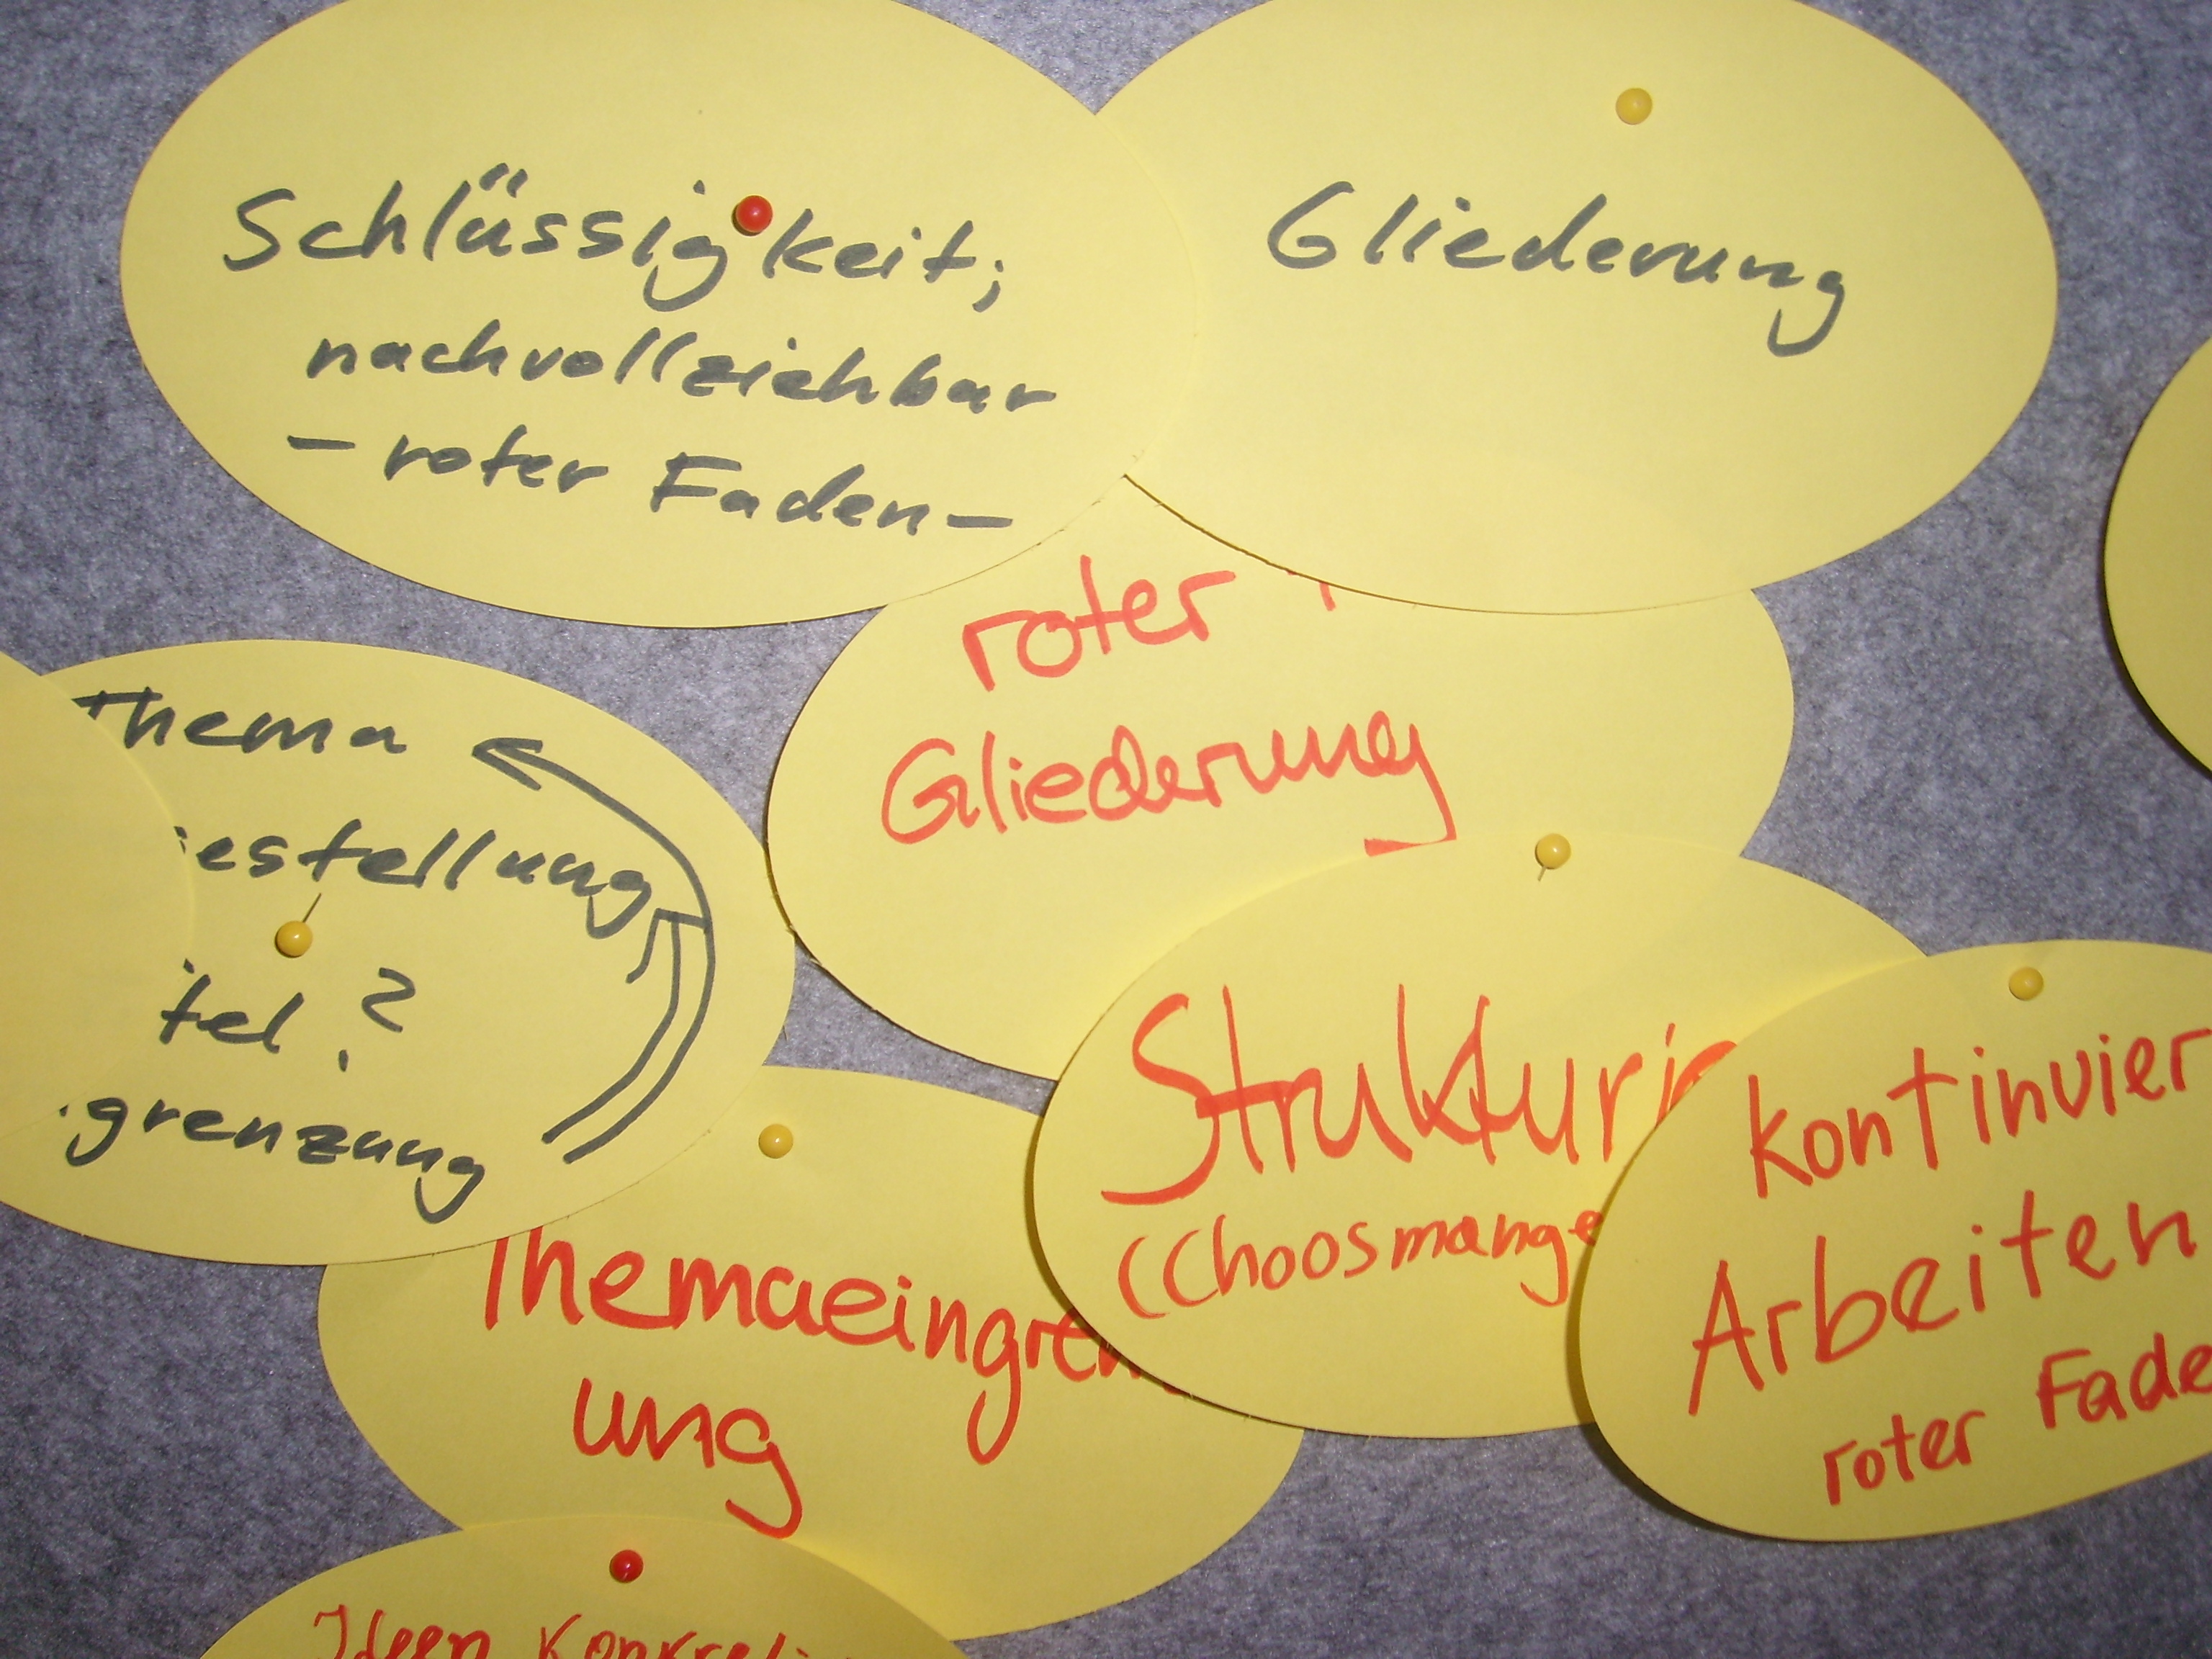 Schlüssigkeit;
nachvollziehbar
– roter Faden –
Gliederung
roter
Gliederung
Thema
estellung
tel?
grenzung
Themaeingren
ung
Strukturie
(Choosmange
kontinuier
Arbeiten
roter Fade
Ideen konkreti